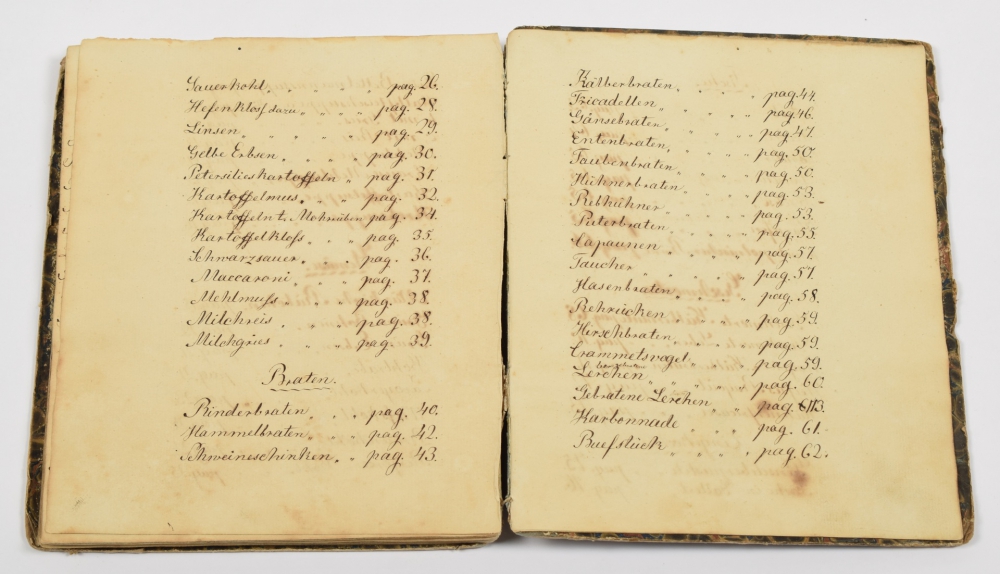 Sauerkohl. " pag. 26.
Hefenkloss dazu " " " pag. 28.
Linsen " " " " pag. 29.
Gelbe Erbsen " " " pag. 30.
Petersilieskartoffeln " pag. 31.
Kartoffelmus. " " pag. 32.
Kartoffeln t. Mohrrüben pag. 34.
Kartoffelkloss. " " pag. 35.
Schwarzsauer. " " pag. 36.
Maccaroni " " pag. 37.
Mehlmuss " " pag. 38.
Milchreis. " " pag. 38.
Milchgries. " " pag. 39.
Braten.
Rinderbraten " " pag. 40.
Hammelbraten " " pag. 42.
Schweineschinken " " pag. 43.
Kälberbraten " " " " pag. 44.
Fricadellen " " " " pag. 46.
Gänsebraten " " " " pag. 47.
Entenbraten " " " " pag. 50.
Taubenbraten " " " " pag. 50.
Hühnerbraten " " " " pag. 53.
Rebhühner " " " " pag. 53.
Puterbraten " " " " pag. 55.
Capaunen " " " " pag. 57.
Taucher " " " " " pag. 57.
Hasenbraten " " " " pag. 58.
Rehrücken " " " " pag. 59.
Herschbraten " " " " pag. 59.
Crammetsvogel " " " pag. 59.
Lerchen " " " " " pag. 60.
Gebratene Lerchen " " pag. 113.
Karbonnade " " " " pag. 61.
Buefstück " " " " pag. 62.